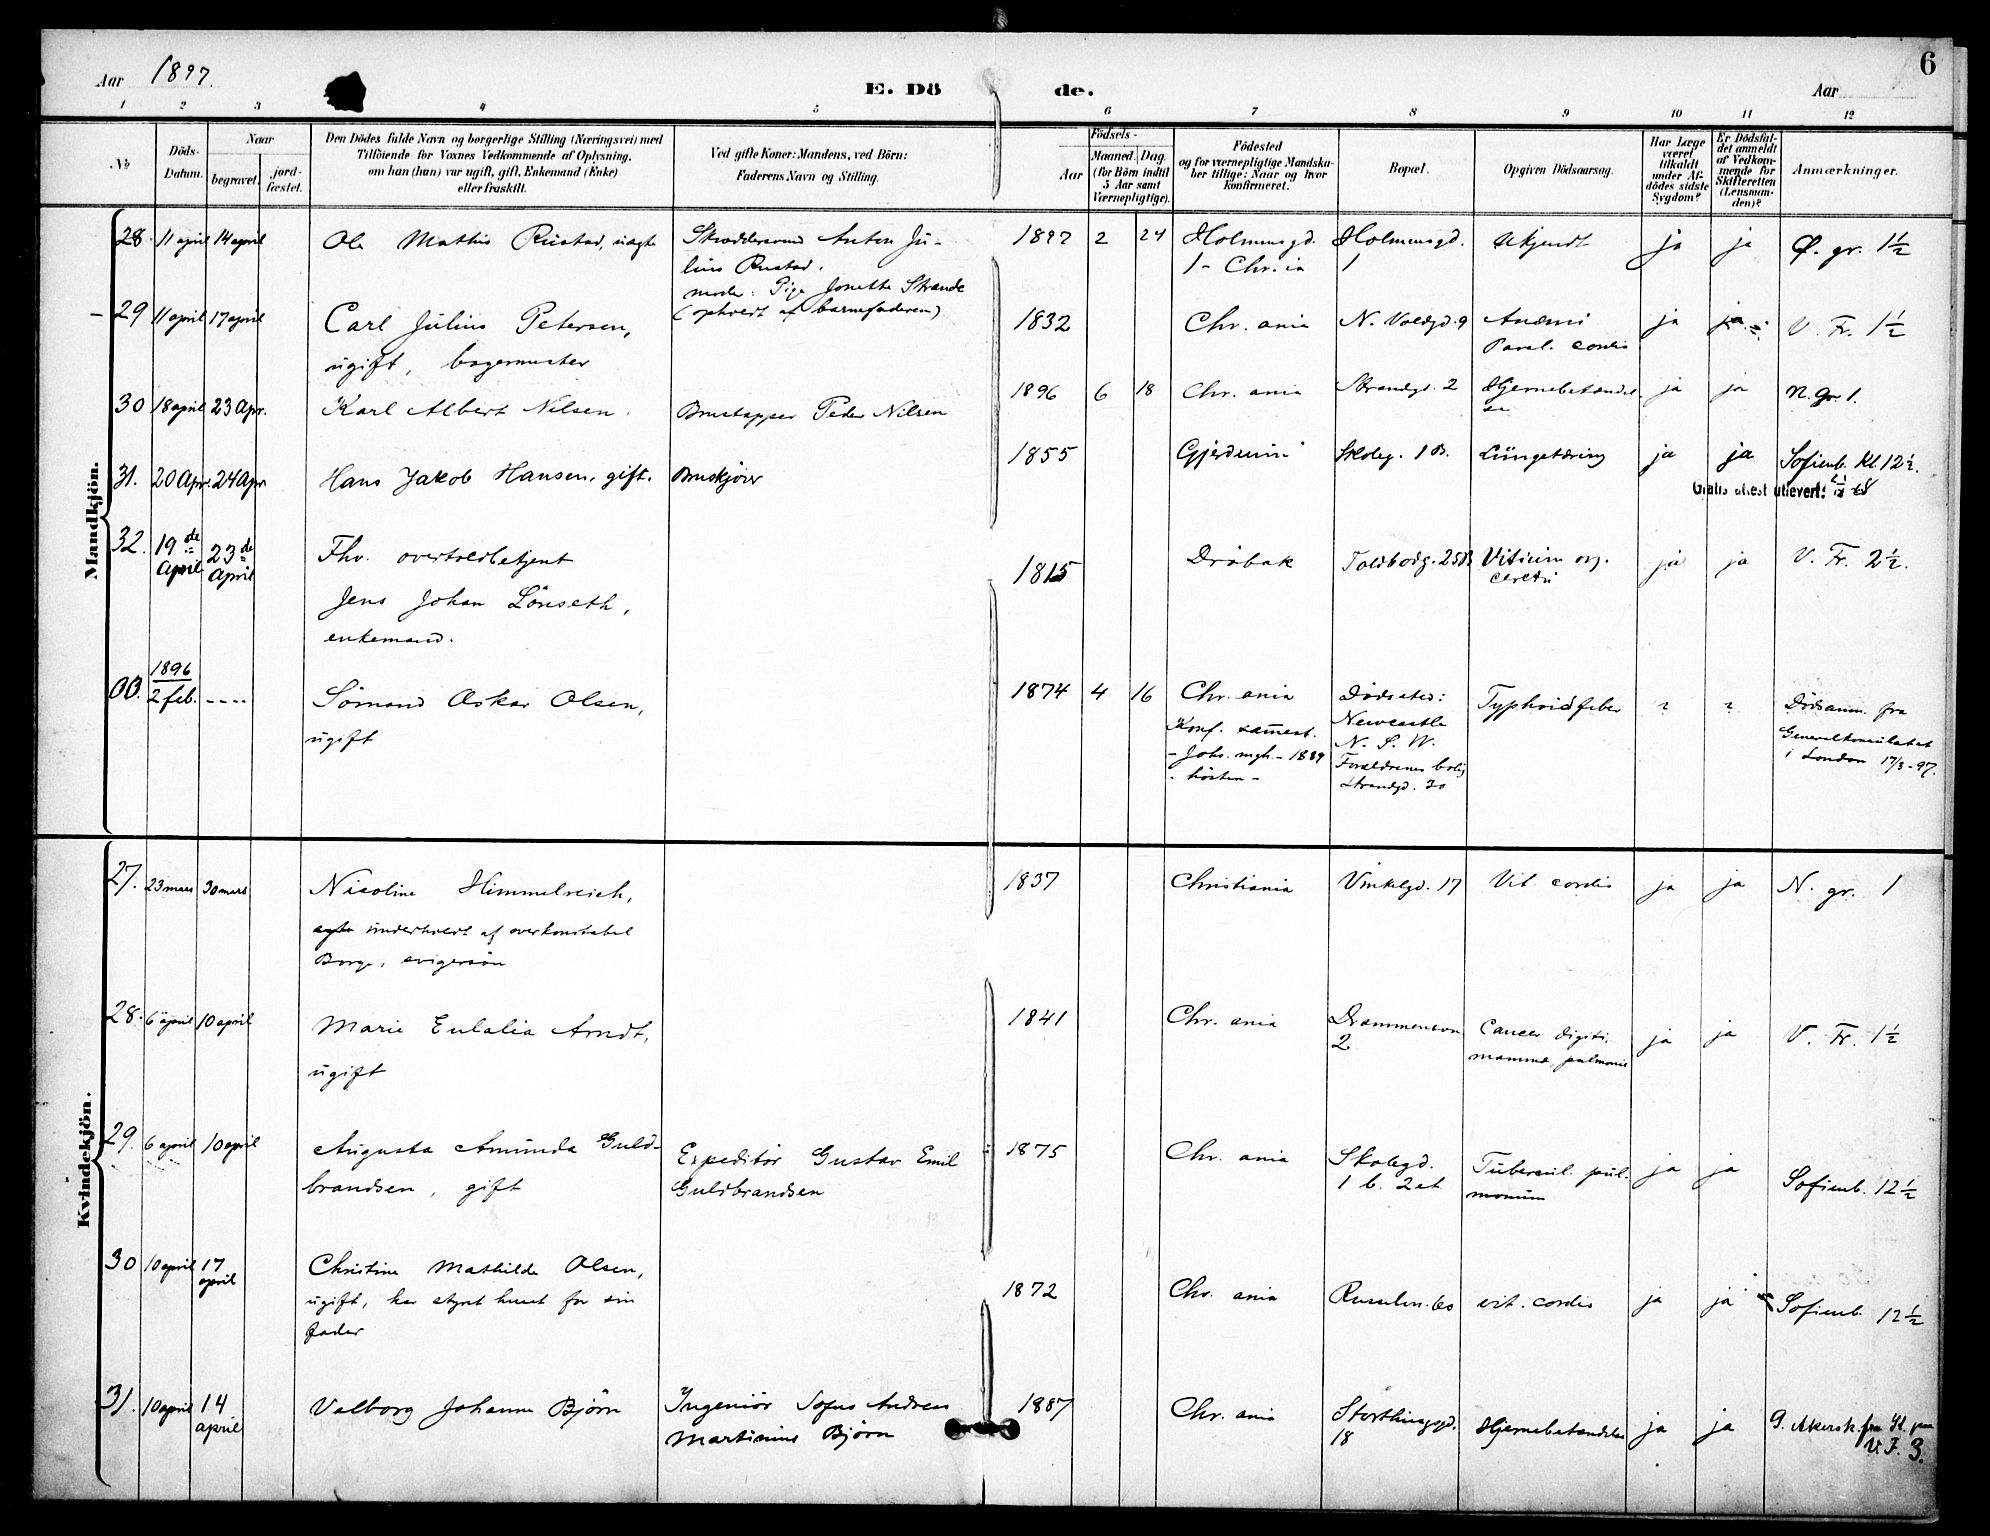 6
Aar 1897.
E. Dö de.
Aar
1 2 3 4 5 6 7 8 9 10 11 12
No
Döds-Datum.
Naar
begravet.
jord-fæstet.
Den Dödes fulde Navn og borgerlige Stilling (Næringsvei) med
Tilföiende for Voxnes Vedkommende af Oplysning,
om han (hun) var ugift, gift, Enkemand (Enke)
eller fraskilt.
Ved gifte Koner: Mandens, ved Börn:
Faderens Navn og Stilling.
Födsels-
Aar
Maaned. Dag.
(for Börn indtil
5 Aar samt
Værnepligtige).
Födested
og for værnepligtige Mandska-
ber tillige: Naar og hvor
konfirmeret.
Bopæl.
Opgiven Dödsaarsag.
Har Læge
været
tilkaldt
under Af-
dödes sidste
Sygdom?
Er Dödsfal-
det anmeldt
af Vedkom-
mende for
Skifteretten
(Lensman-
den)?
Anmærkninger.
Mandkjön.
28. 11 april 14 april Ole Mathis Rustad, uægte Skræddersvend Anton Ju- 1897 2 24 Holmensgd. Holmensgd. Ukjendt ja ja Ø. gr. 1½
lius Rustad. 1 - Chr.ia 1
moder: Pige Jonette Strande
(ophold af barnefaderen)
29 11 april 17 april Carl Julius Petersen, 1832 Chr. ania N. Voldgd. 9 Anæmi ja ja V. Fr. 1½
ugift, bagermester Paral. cordis
30 18 april 23 Apr. Karl Albert Nilsen. Brustapper Peder Nilsen 1896 6 18 Chr. ania Strandgd. 2 Hjernebetændel ja ja N. gr. 1.
se
31. 20 Apr. 24 Apr. Hans Jakob Hansen, gift. Bruskjører 1855 Gjerdrum Skoleg. 1 B. Lungetæring ja ja Sofienb. Kl 12½.
Gratis attest utlevert:
32. 19de April 23de April Fhv. overtoldbetjent 1815 Drøbak Toldbodg. 25B Vitium org. ja ja V. Fr. 2½.
Jens Johan Lönseth, cordis
enkemand.
00. 1896 2 feb. ---- Sömand Oskar Olsen, 1874 4 16 Chr. ania Dödssted: Typhoidfeber ? ? Dödsanm. fra
ugift Konf. sammest. Newcastle Generalkonsulatet
- Johs. mgh. - 1889 N. S. W. i London 17/3-97.
- hösten - Forældrenes bolig
Strandgd. 30
Kvindekjön.
27. 23 mars 30 mars Nicoline Himmelreich, 1837 Christiania Vinkelgd. 17 Vit. cordis ja ja N. gr. 1
underholdt af overkonstabel
Borge, svigersön
28. 6 april 10 april Marie Eulalia Arndt, 1841 Chr. ania Drammensvn 2 Cancer digiti, ja ja V. Fr. 1½
ugift mammæ, pulmonis
29. 6 april 10 april Augusta Amunda Guld- Expeditör Gustav Emil 1875 Chr. ania Skolegd. Tubercul. pul- ja ja Sofienb. 12½
brandsen, gift Guldbrandsen 1 b. 2 et monum
30 10 april 17 april Christine Mathilde Olsen, 1872 Chr. ania Russelnv. 60 vit. cordis ja ja Sofienb. 12½
ugift, har styret huset for sin
fader
31. 10 april 14 april Valborg Johanne Björn Ingeniör Sofus Andreas 1887 Chr. ania Storthingsgd. 18 Hjernebetændelse ja ja G. Akersk. fra
Martinius Björn V. F. 3.